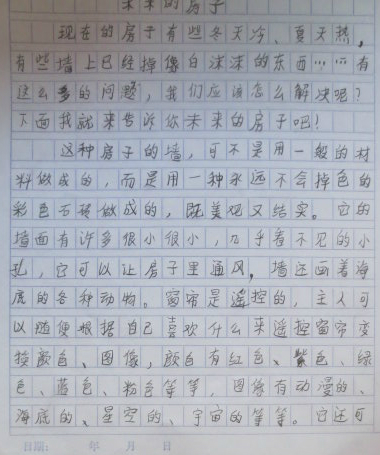 未来的房子
现在的房子有些冬天冷、夏天热,
有些墙上已经掉像白沫沫的东西……有
这么多的问题,我们应该怎么解决呢?
下面我就来告诉你未来的房子吧!
这种房子的墙,可不是用一般的材
料做成的,而是用一种永远不会掉色的
彩色石砖做成的,既美观又结实。它的
墙面有许多很小很小,几乎看不见的小
孔,它可以让房子里通风。墙还画着海
底的各种动物。窗帘是遥控的,主人可
以随便根据自己喜欢什么来遥控窗帘变
换颜色、图像,颜色有红色、紫色、绿
色、蓝色、粉色等等,图像有动漫的、
海底的、星空的、宇宙的等等。它还可
日期: 年 月 日